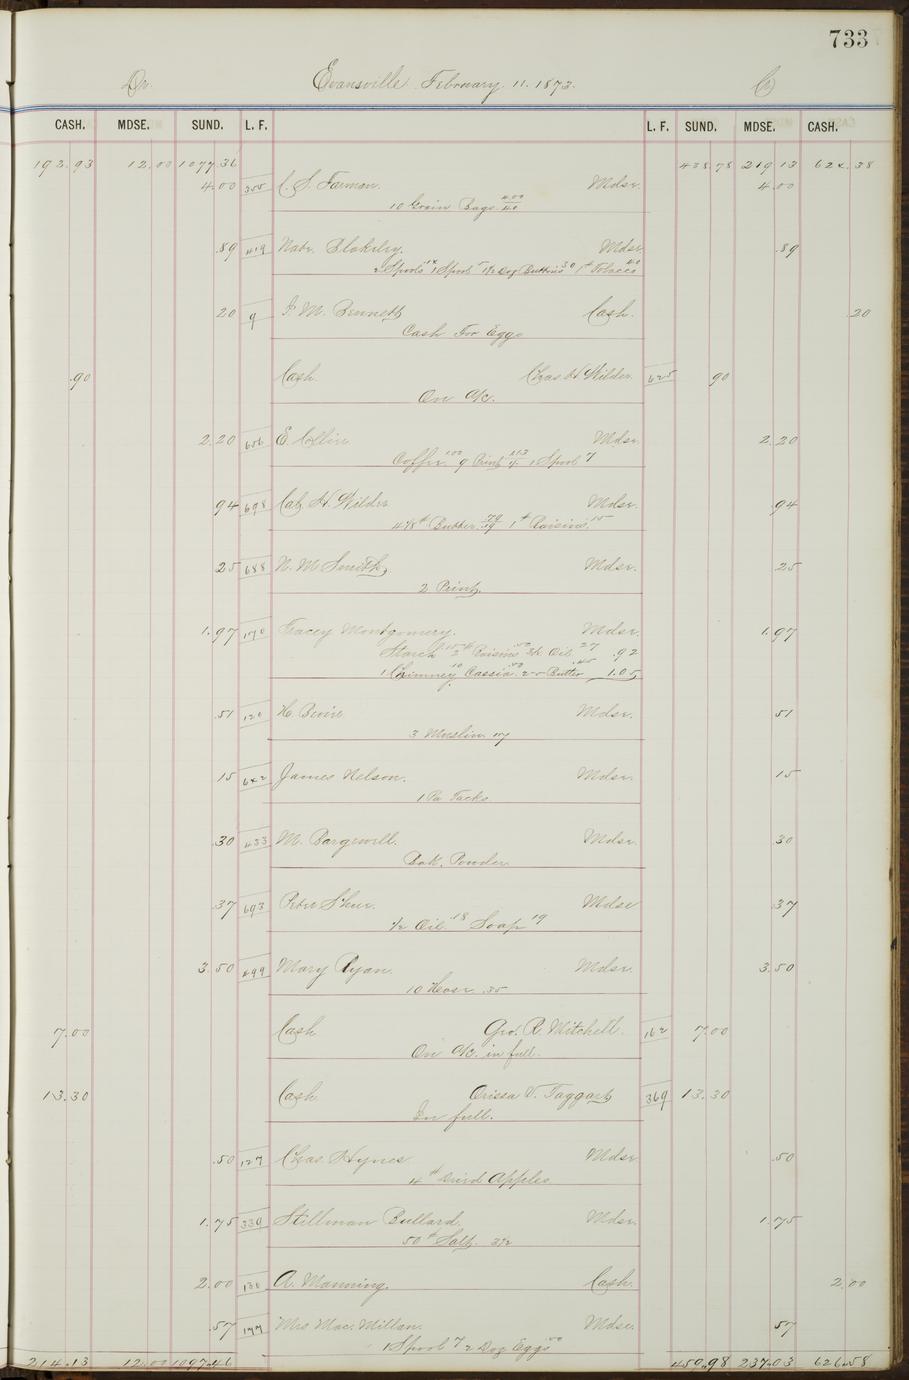 733
Dr. Evansville February 11. 1873. Cr
CASH. MDSE. SUND. L. F. L. F. SUND. MDSE. CASH.
193.93 12.00 1077.36 438.78 219.13 624.38
4.00 355 C. S. Farman. Mdse. 4.00
10 Grain Bags 4.00 / 40
.89 419 Nate. Blakeley. Mdse .89
2 Spools 14 1 Spool 5 1/2 Doz Buttons 30 1# Tobacco 40
20 9 I. M. Bennett Cash. 20
Cash For Eggs
.90 Cash. Chas. H. Wilder. 625 90
On a/c.
2.20 656 E. Mdse. 2.20
Coffee 1.00 9 Print 1.13 1 Spool 7
94 698 Cal. H. Wilder Mdse. 94
4 1/8# Butter 79 / 19 1# Raisins 15
25 688 N. M. Smith, Mdse. 25
2 Print.
1.97 170 Tracey Montgomery. Mdse. 1.97
Starch 15 2# Raisins .50 3/4 Oil. 27 .92
1 Chimney 10 Cassia .50 Butter .45 1.05
.51 120 H. Mdse. 51
3 Muslin 17
15 642 James Nelson. Mdse. 15
1 Pa Tacks
.30 433 M. Bargewell. Mdse. 30
Bak. Powder
.37 693 Peter Shue. Mdse 37
1/2 Oil. 18 Soap 19
3.50 499 Mary Ryan. Mdse. 3.50
10 .35
7.00 Cash Geo. R. Mitchell. 162 7.00
On a/c. in full.
13.30 Cash Orissa V. Taggart 369 13.30
In full.
.50 127 Chas. Hynes Mdse .50
4# Dried Apples
1.75 339 Stillman Bullard. Mdse. 1.75
50# Salt. 3 1/2
2.00 130 A. Manning. Cash. 2.00
.57 177 Mrs Mac. Millan. Mdse. 57
1 Spool 7 2 Doz Eggs .50
214.13 12.00 1097.46 459.98 237.03 626.58